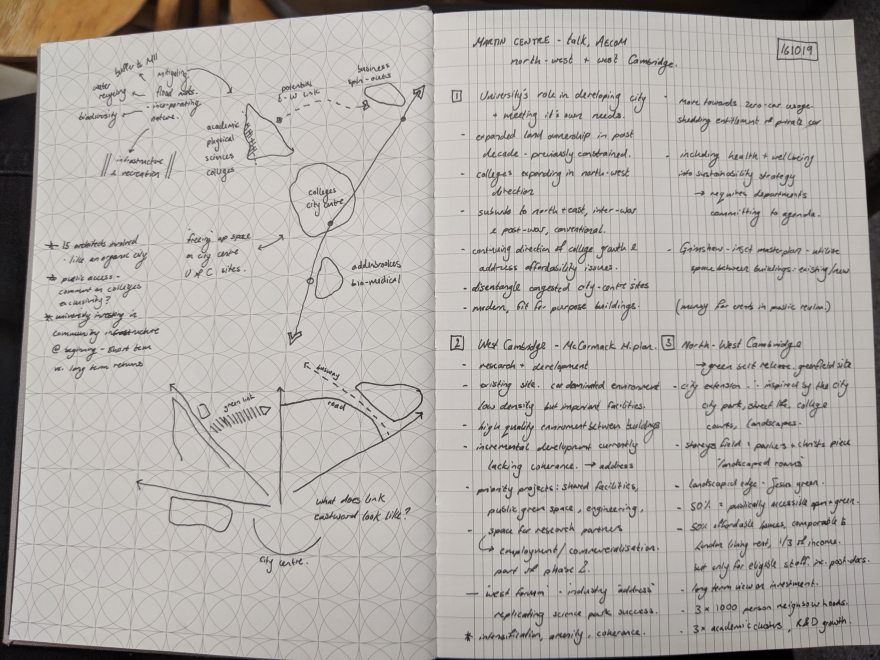 buffer to M11
water
recycling
mitigating
flood risks.
biodiversity
- incorporating
nature.
infrastructure
& recreation
academic
physical
sciences
colleges
potential
E-W link
business
spin-outs
colleges
city centre
'freeing' up space
in city centre
U & C sites.
addenbrookes
bio-medical
* 15 architects involved
- like an organic city
* public access -
comment on colleges
exclusivity?
* university investing in
community infrastructure
@ beginning - short term
vs. long term returns
green link
busway
road
what does link
eastward look like?
city centre.
MARTIN CENTRE - talk, AECOM
north-west + west Cambridge.
161019
1 University's role in developing city
+ meeting it's own needs.
- expanded land ownership in past
decade - previously constrained.
- colleges expanding in north-west
direction
- suburbs to north + east, inter-war
& post-war, conventional.
- continuing direction of college growth &
address affordability issues.
- disentangle congested city-centre sites
- modern, fit for purpose buildings.
- move towards zero-car usage
shedding entitlement of private car
- including health + wellbeing
into sustainability strategy
→ requires departments
committing to agenda.
- Grimshaw - inset masterplan - utilise
space between buildings: existing/new
(money for events in public realm)
2 West Cambridge - McCormack M.plan.
- research + development
- existing site. car dominated environment
low density but important facilities.
- high quality environment between buildings
- incremental development currently
lacking coherence. → address
- priority projects: shared facilities,
public green space, engineering,
- space for research partners
→ employment/commercialisation.
part of phase 2.
- 'west forum' - industry "address"
replicating science park success.
* intensification, amenity, coherance.
3 North-West Cambridge
→ green belt release. greenfield site
- city extension ∴ inspired by the city
city park, street life, college
courts, landscapes.
- storeys field = parkers + christs piece
'landscaped rooms'
- landscaped edge - Jesus green.
- 50% = publically accessible open + green.
- 50% affordable homes, comparable to
London living rent, 1/3 of income.
but only for eligible staff. ie. post-docs.
- long term view on investment.
- 3 x 1000 person neighbourhoods.
- 3 x academic clusters, R&D growth.